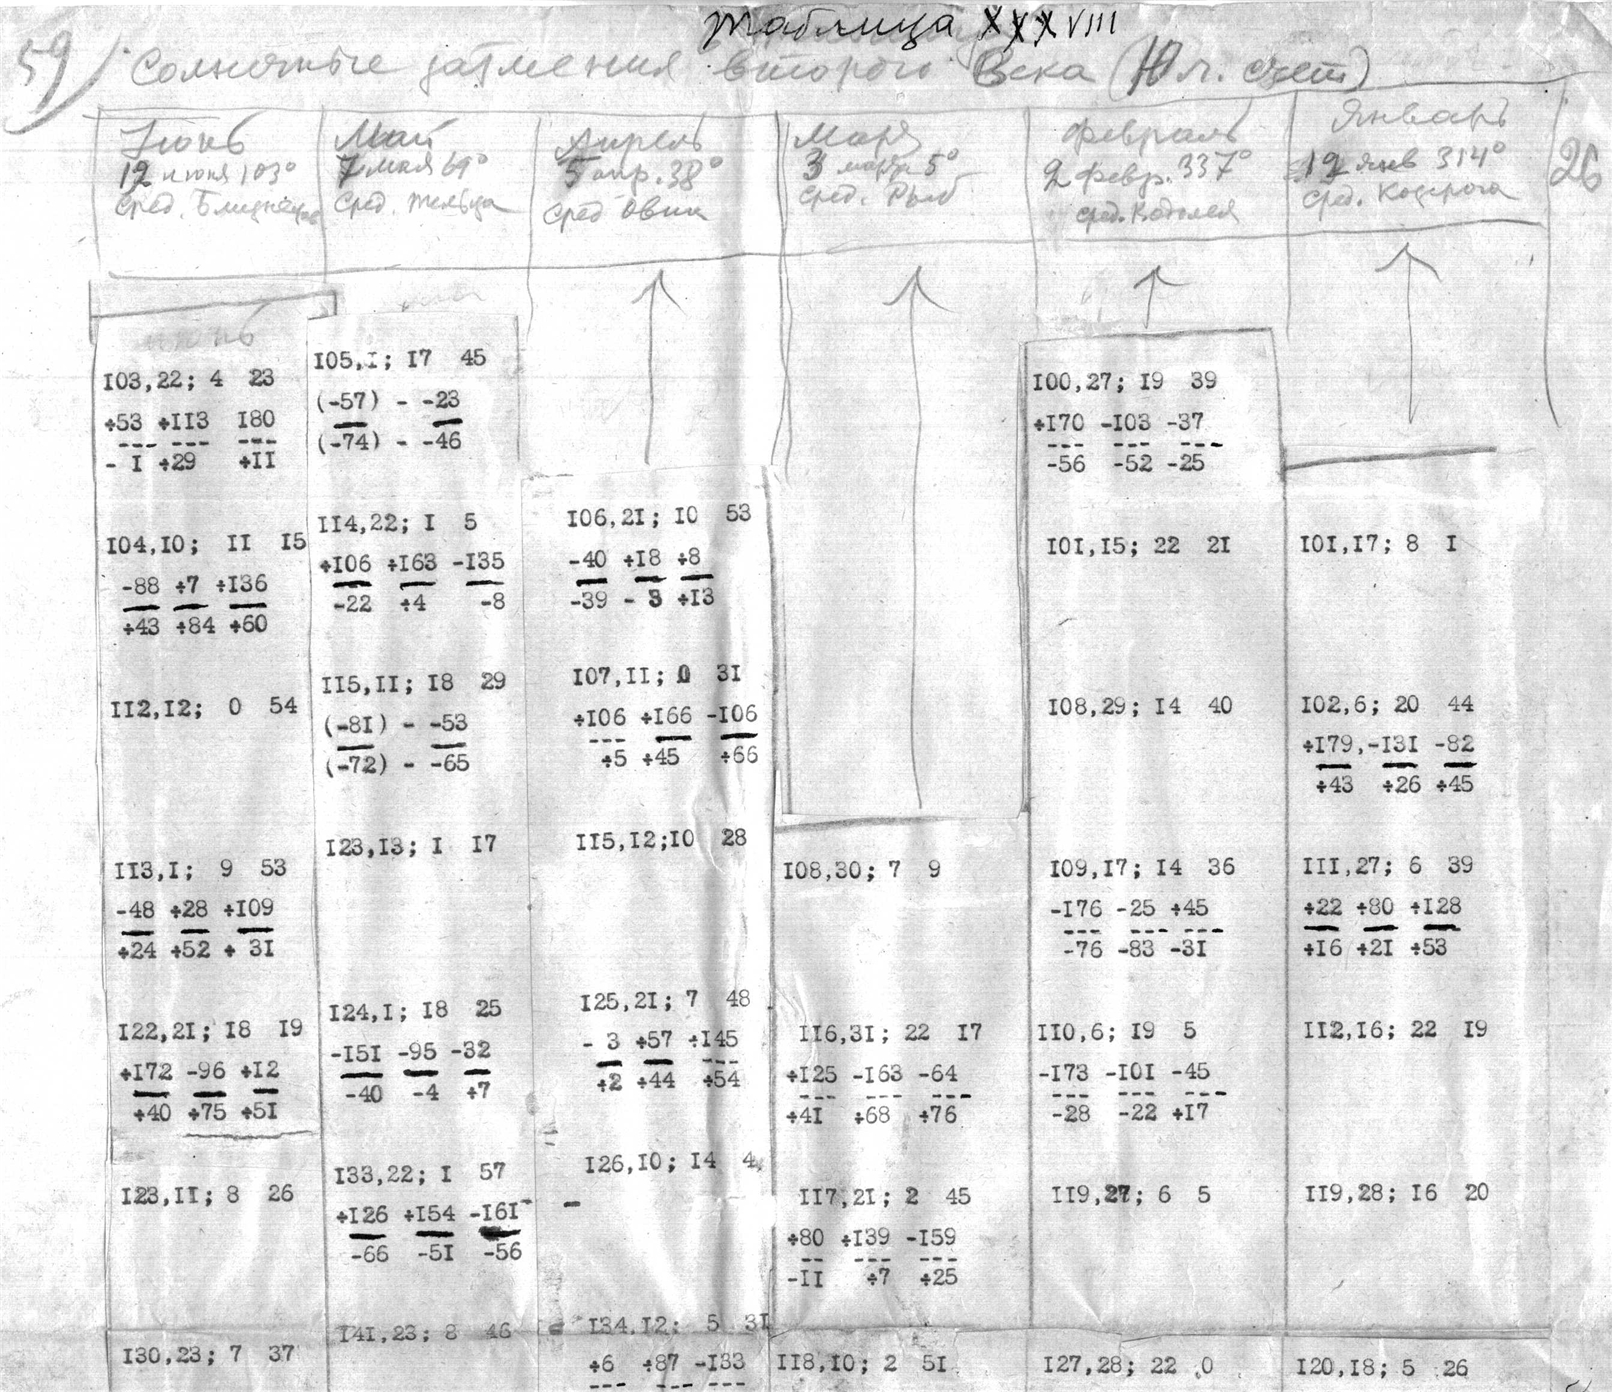 Таблица XXXVIII
59) Солнечные затмения второго Века (Юл. счет)
26
Июнь
12 июня 103°
сред. Близнецов
Май
7 мая 69°
сред. тельца
Апрель
5 апр. 38°
сред Овна
Март
3 марта 5°
сред. Рыб
Февраль
2 февр. 337°
сред. Водолея
Январь
12 янв 314°
сред. Козерога
июнь
I03,22; 4 23
+53 +II3 I80
- I +29 +II
I04,I0; II I5
-88 +7 +I36
+43 +84 +60
II2,I2; 0 54
II3,I; 9 53
-48 +28 +I09
+24 +52 + 3I
I22,2I; I8 I9
+I72 -96 +I2
+40 +75 +5I
I23,II; 8 26
I30,23; 7 37
I05,I; I7 45
(-57) - -23
(-74) - -46
II4,22; I 5
+I06 +I63 -I35
-22 +4 -8
II5,II; I8 29
(-8I) - -53
(-72) - -65
I23,I3; I I7
I24,I; I8 25
-I5I -95 -32
-40 -4 +7
I33,22; I 57
+I26 +I54 -I6I
-66 -5I -56
I4I,23; 8 46
I06,2I; I0 53
-40 +I8 +8
-39 - 3 +I3
I07,II; 0 3I
+I06 +I66 -I06
+5 +45 +66
II5,I2;I0 28
I25,2I; 7 48
- 3 +57 +I45
+2 +44 +54
I26,I0; I4 4
I34,I2; 5 3I
+6 +87 -I33
I08,30; 7 9
II6,3I; 22 I7
+I25 -I63 -64
+4I +68 +76
II7,2I; 2 45
+80 +I39 -I59
-II +7 +25
II8,I0; 2 5I
I00,27; I9 39
+I70 -I03 -37
-56 -52 -25
I0I,I5; 22 2I
I08,29; I4 40
I09,I7; I4 36
-I76 -25 +45
-76 -83 -3I
II0,6; I9 5
-I73 -I0I -45
-28 -22 +I7
II9,27; 6 5
I27,28; 22 0
I0I,I7; 8 I
I02,6; 20 44
+I79,-I3I -82
+43 +26 +45
III,27; 6 39
+22 +80 +I28
+I6 +2I +53
II2,I6; 22 I9
II9,28; I6 20
I20,I8; 5 26